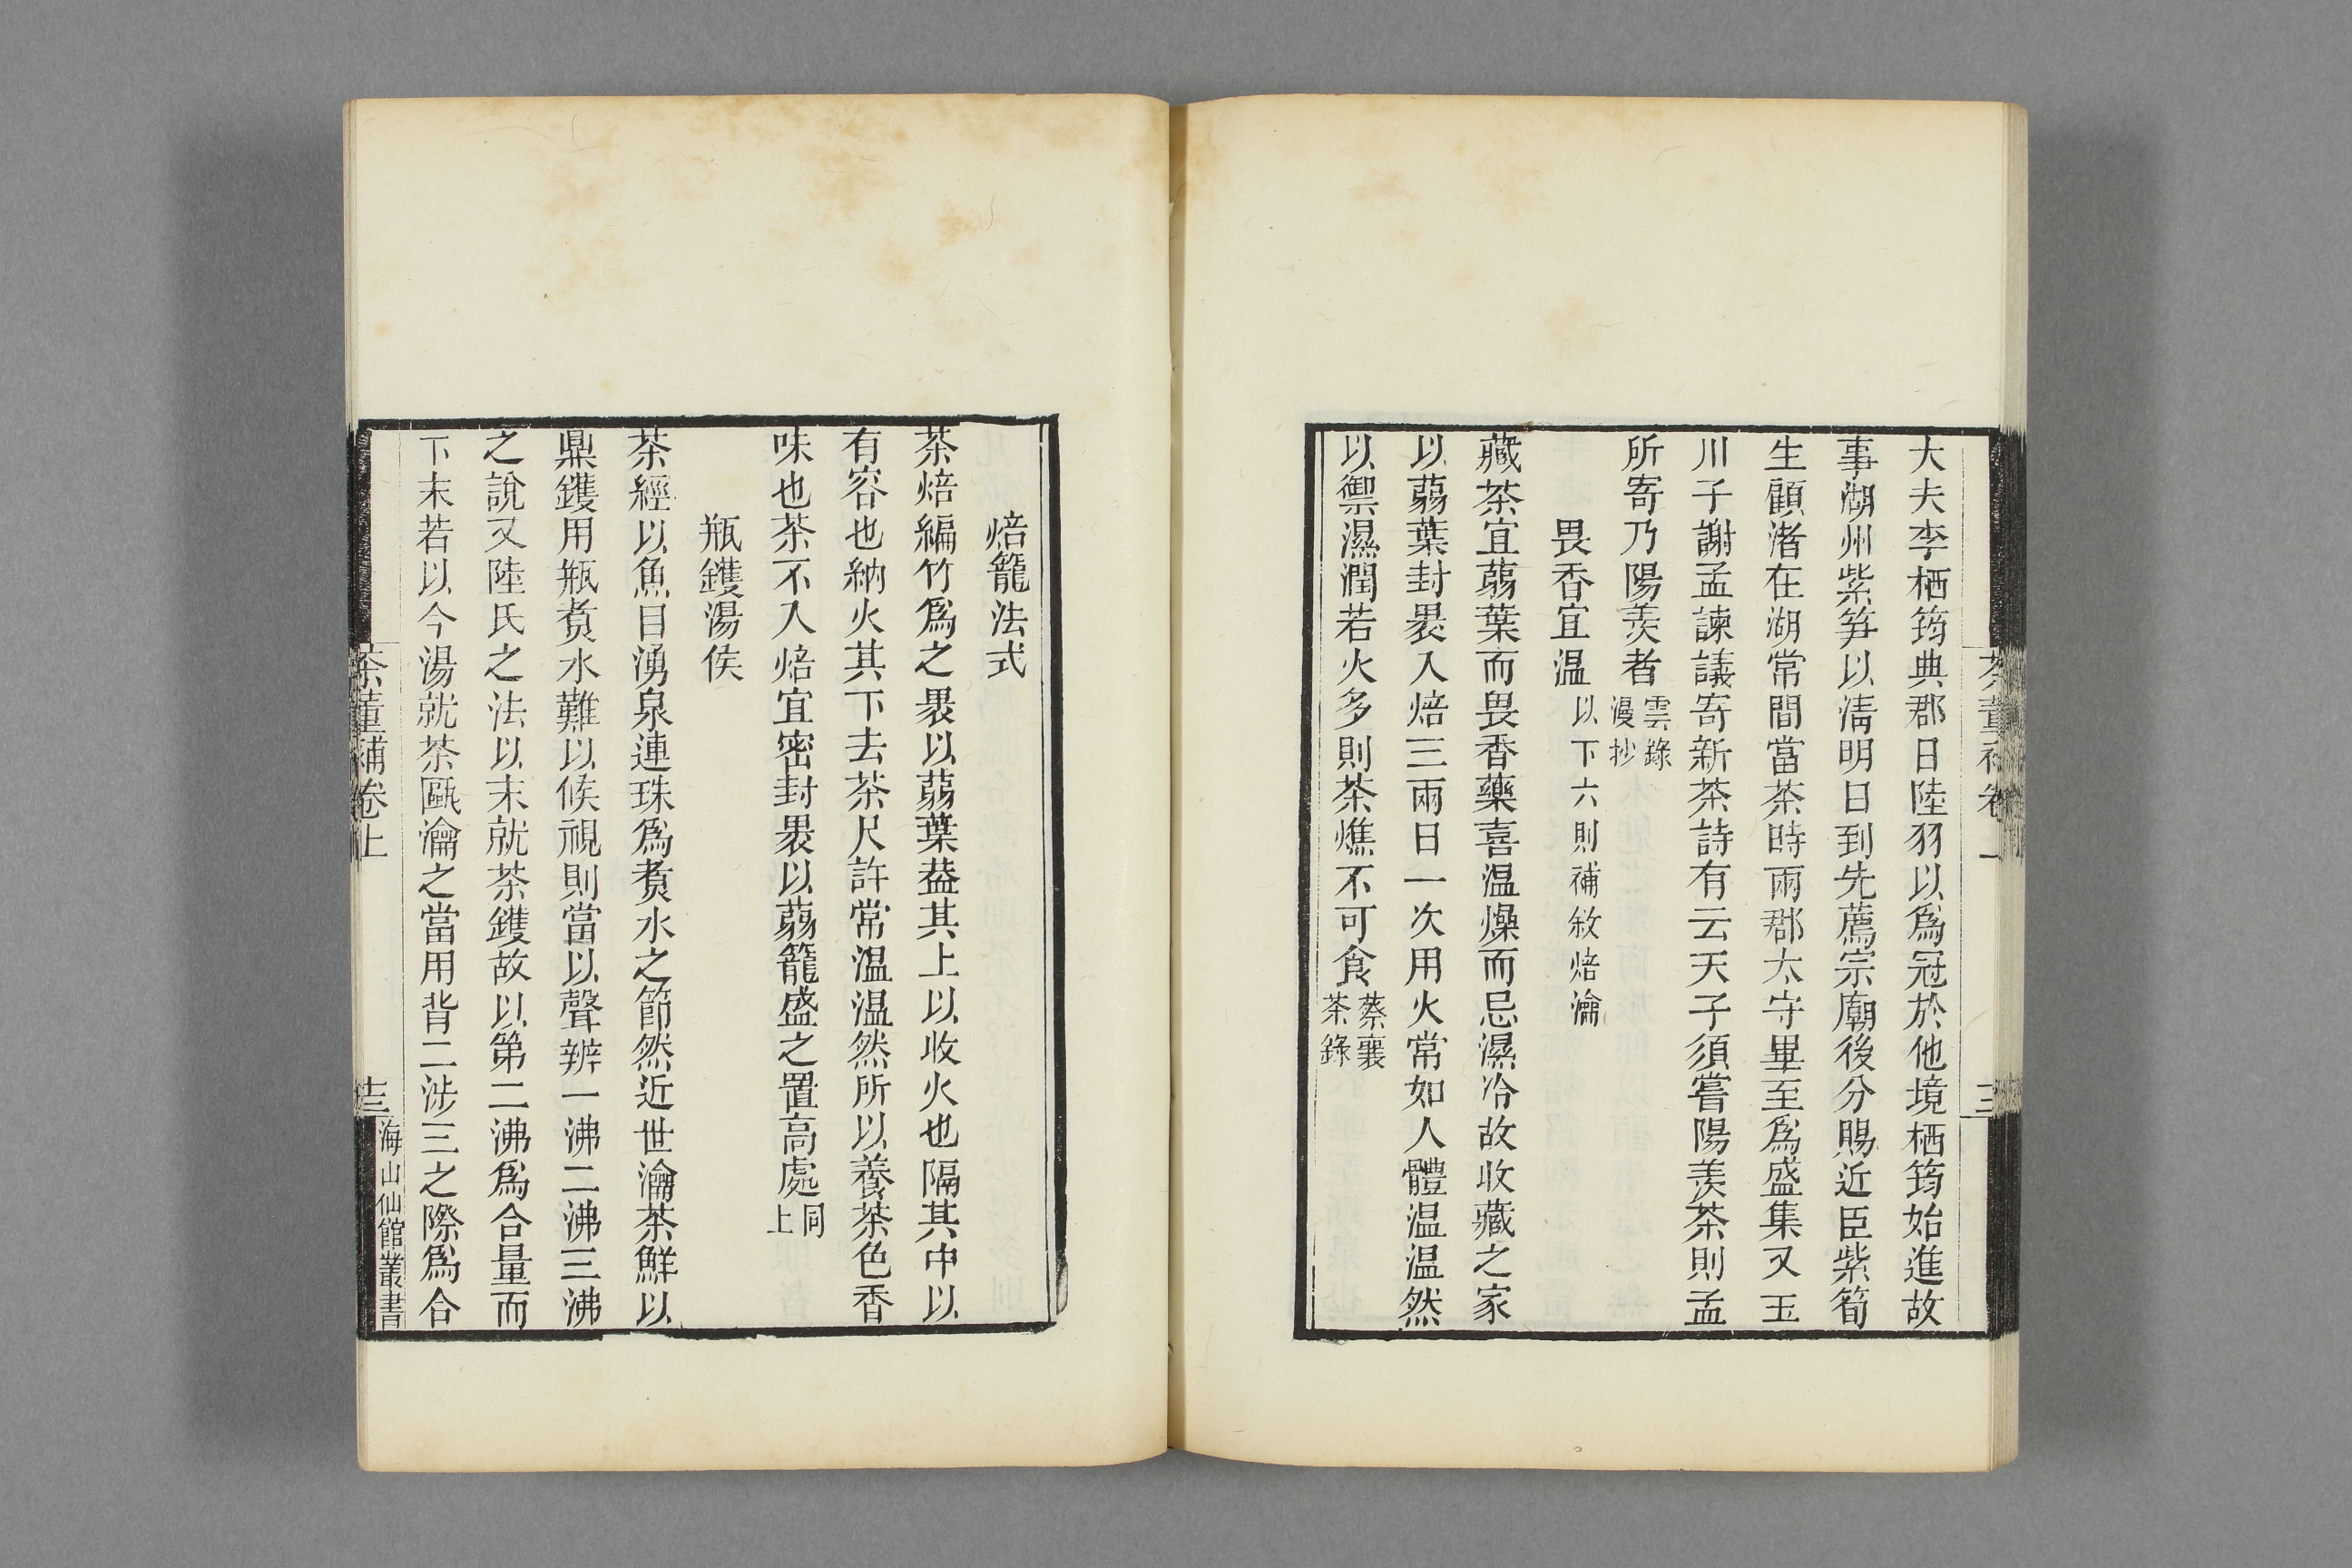 大夫李栖筠典郡日陸羽以爲冠於他境栖筠始進故
事湖州紫笋以淸明日到先薦宗廟後分賜近臣紫筍
生顧渚在湖常間當茶時兩郡太守畢至爲盛集又玉
川子謝孟諫議寄新茶詩有云天子須嘗陽羨茶則孟
所寄乃陽羨者雲錄漫抄
畏香宜温以下六則補敘焙瀹
藏茶宜蒻葉而畏香藥喜温燥而忌濕冷故收藏之家
以蒻葉封褁入焙三兩日一次用火常如人體温温然
以禦濕潤若火多則茶燋不可食蔡襄茶錄
焙籠法式
茶焙編竹爲之褁以蒻葉葢其上以收火也隔其中以
有容也納火其下去茶尺許常温温然所以養茶色香
味也茶不入焙宜密封褁以蒻籠盛之置高處同上
瓶鑊湯侯
茶經以魚目湧泉連珠爲煑水之節然近世瀹茶鮮以
鼎鑊用瓶煑水難以候視則當以聲辨一沸二沸三沸
之說又陸氏之法以末就茶鑊故以第二沸爲合量而
下末若以今湯就茶甌瀹之當用背二涉三之際爲合
茶董補卷上
海山仙館叢書